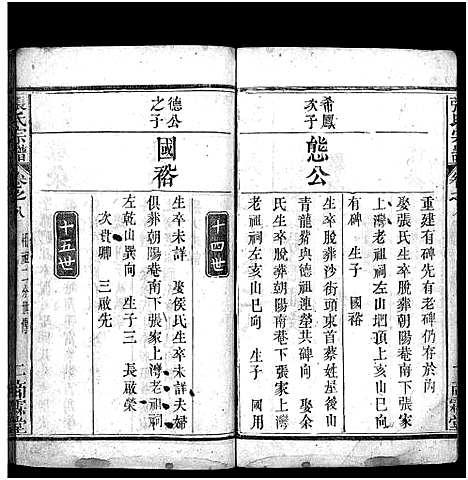 重建有碑先有老碑仍存於內
娶張氏生卒脫葬朝陽菴南下張家
上灣老祖祠左山塆頂上亥山巳向
有碑 生子 國裕
十四世
希鳳次子
態公
生卒脫葬沙街頭東首蔡姓屋後山
青龍嘴與德祖連塋共碑向 娶余
氏生卒脫葬朝陽南菴下張家上灣
老祖祠左亥山巳向 生子 國用
十五世
德公之子
國裕
生卒未詳 娶侯氏生卒未詳夫婦
俱葬朝陽菴南下張家上灣老祖祠
左乾山巽向 生子三 長啟榮
次貴卿 三啟先
張氏宗譜
卷之八